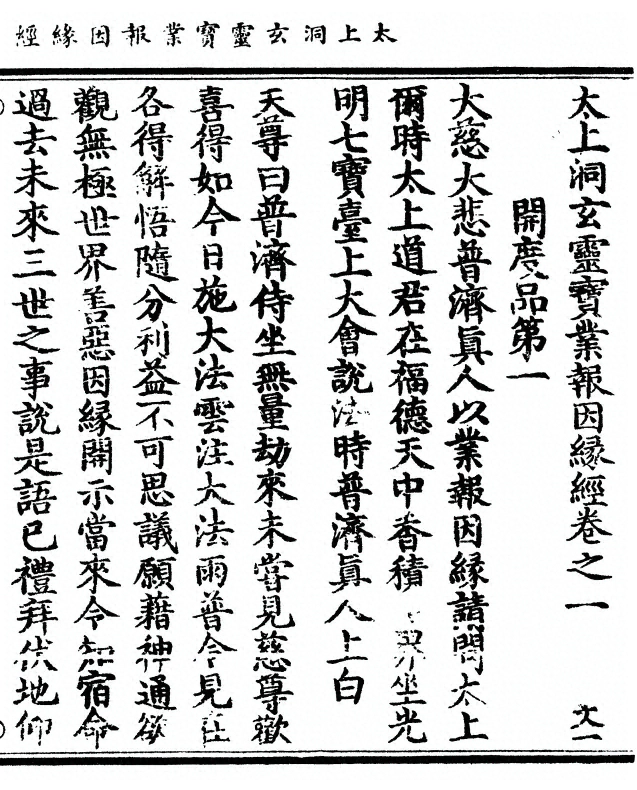 太上洞玄靈寶業報因緣經
太上洞玄靈寶業報因緣經卷之一
開度品第一
大慈大悲普濟眞人以業報因緣請問太上
爾時太上道君在福德天中香積世界坐光
明七寶臺上大會說法時普濟眞人上白
天尊曰普濟侍坐無量劫來未嘗見慈尊歡
喜得如今日施大法雲注大法雨普令見在
各得解悟隨分利益不可思議願藉神通欲
觀無極世界善惡因緣開示當來令知宿命
過去未來三世之事說是語已禮拜伏地仰